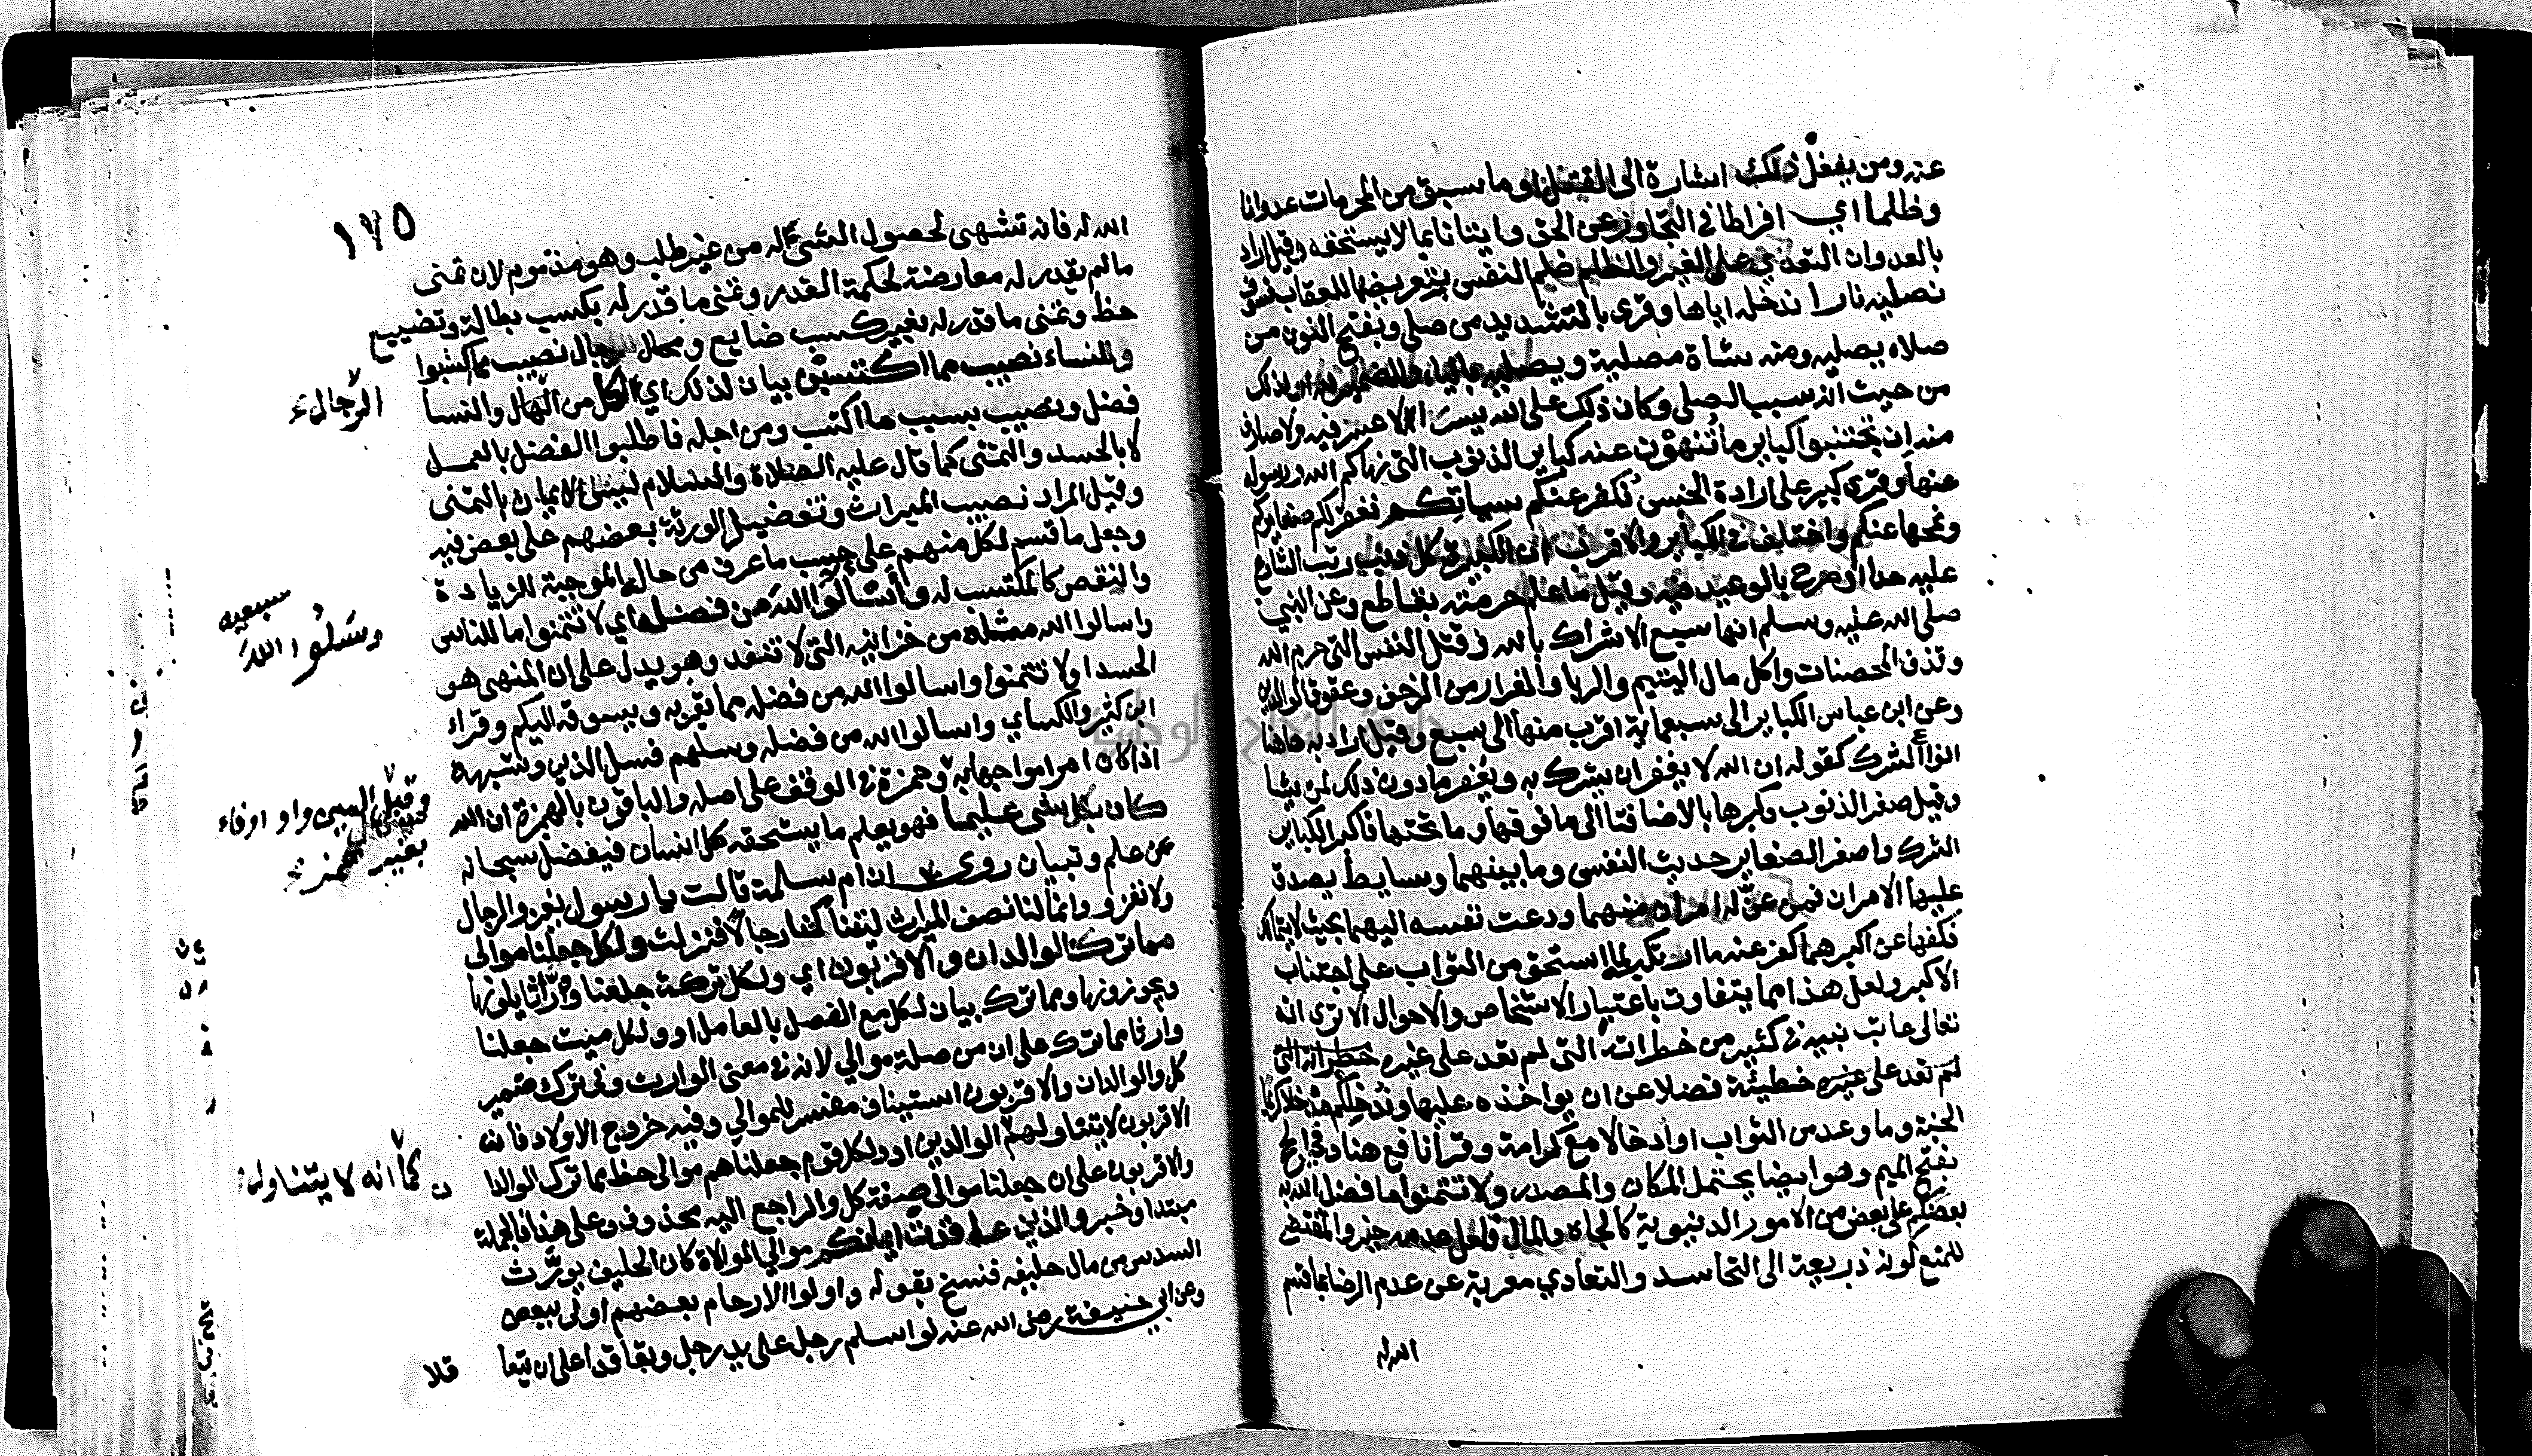 عنه ومن يفعل ذلك اشارة الى القتل او ما سبق من المحرمات عدوانا
وظلما اي افراطا في التجاوز عن الحق واتيانا بما لا يستحقه وقيل اراد
بالعدوان التعدي على الغير والظلم ظلم النفس بتعريضها للعقاب فسوف
نصليه نارا ندخله اياها وقرئ بالتشديد من صلى وبفتح النون من
صلاه يصليه ومنه شاة مصلية ويصليه بالياء والضمير لله او لذلك
من حيث انه سبب الصلي وكان ذلك على الله يسيرا لا عسر فيه ولا صارف
منه ان تجتنبوا كباير ما تنهون عنه كباير الذنوب التي نهاكم الله ورسوله
عنها وقرئ كبير على ارادة الجنس نكفر عنكم سياتكم نغفر لكم صغايركم
ونمحها عنكم واختلف في الكباير والاقرب ان الكبيرة كل ذنب رتب الشارع
عليه حدا او صرح بالوعيد فيه وقيل ما علم حرمته بقاطع وعن النبي
صلى الله عليه وسلم انها سبع الاشراك بالله وقتل النفس التي حرم الله
وقذف المحصنات واكل مال اليتيم والربا والفرار من الزحف وعقوق الوالدين
وعن ابن عباس الكباير الى سبعماية اقرب منها الى سبع وقيل اراد به هاهنا
انواع الشرك كقوله ان الله لا يغفر ان يشرك به ويغفر ما دون ذلك لمن يشا
وقيل صغر الذنوب وكبرها بالاضافة الى ما فوقها وما تحتها فاكبر الكباير
الشرك واصغر الصغاير حديث النفس وما بينهما وسايط يصدق
عليها الامران فمن عن له امران منهما ودعت نفسه اليهما بحيث لا يتمالك
فكفها عن اكبرهما كفر عنه ما ارتكبه لما استحق من الثواب على اجتناب
الاكبر ولعل هذا مما يتفاوت باعتبار الاشخاص والاحوال الا ترى انه
تعالى عاتب نبيه في كثير من خطراته التي لم تعد على غيره خطراته التي
لم تعد على غيره خطيئة فضلا عن ان يواخذه عليها وندخلكم مدخلا كريما
الجنة وما وعد من الثواب او ادخالا مع كرامة وقرأ نافع هنا وفي الحج
بفتح الميم وهو ايضا يحتمل المكان والمصدر ولا تتمنوا ما فضل الله به
بعضكم على بعض من الامور الدنيوية كالجاه والمال فلعل عدمه خير والمقتضي
للمنع كونه ذريعة الى التحاسد والتعادي معربة عن عدم الرضا بما قسم
الله له
١٧٥
الله له فانه تشهى لحصول الشئ له من غير طلب وهو مذموم لان تمنى
مالم يقدر له معارضة لحكمة القدر وتمنى ما قدر له بكسب بطالة وتضييع
حظ وتمنى ما قدر له بغير كسب ضايع ومحال للرجال نصيب مما اكتسبوا
وللنساء نصيب مما اكتسبن بيان لذلك اي لكل من الرجال والنسا
الرجال
فضل ونصيب بسبب ما اكتسب ومن اجله فاطلبوا الفضل بالعمل
لا بالحسد والتمنى كما قال عليه الصلاة والسلام ليس الايمان بالتمنى
وقيل المراد نصيب الميراث وتفضيل الورثة بعضهم على بعض فيه
وجعل ما قسم لكل منهم على حسب ما عرف من حاله الموجبة للزيادة
والنقص كالمكتسب له واسألوا الله من فضله اي لا تتمنوا ما للناس
وسلوا الله
واسالوا الله مثله من خزاينه التي لا تنفد وهو يدل على ان المنهى هو
الحسد او لا تتمنوا واسالوا الله من فضله مما يقربه ويسوقه اليكم وقراء
ابن كثير والكساي واسالوا الله من فضله وسلهم فسل الذين وشبهه
اذا كان امرا مواجها به وحمزة في الوقف على اصله والباقون بالهمزة ان الله
وقبل السين واو او فاء
بغير همز
كان بكل شى عليما فهو يعلم ما يستحقه كل انسان فيفضل سبحانه
عن علم وتبيان روى ان ام سلمة قالت يا رسول يغزو الرجال
ولا نغزو وانما لنا نصف الميراث ليتنا كنا رجالا فنزلت ولكل جعلنا موالى
مما ترك الوالدان والاقربون اي ولكل تركة جعلنا وراثا يلونها
ويحوزونها ومما ترك بيان لكل مع الفصل بالعامل او ولكل ميت جعلنا
وارثا مما ترك على ان من صلة موالي لانه في معنى الوارث وفي ترك ضمير
كل والوالدان والاقربون استيناف مفسر للموالي وفيه خروج الاولاد فان
الاقربون لا يتناولهم الوالدين او ولكل قوم جعلناهم موالى حظ مما ترك الوالدا
ن كما انه لا يتناول
والاقربون على ان جعلنا موالى صفة كل والراجع اليه محذوف وعلى هذا فالجملة
مبتدا وخبر والذين عقدت ايمانكم موالي الموالاة كان الحليف يورث
السدس من مال حليفه فنسخ بقوله واولوا الارحام بعضهم اولى ببعض
وعن ابي حنيفة رضى الله عنه لو اسلم رجل على يد رجل وتعاقدا على ان يتعا
قلا